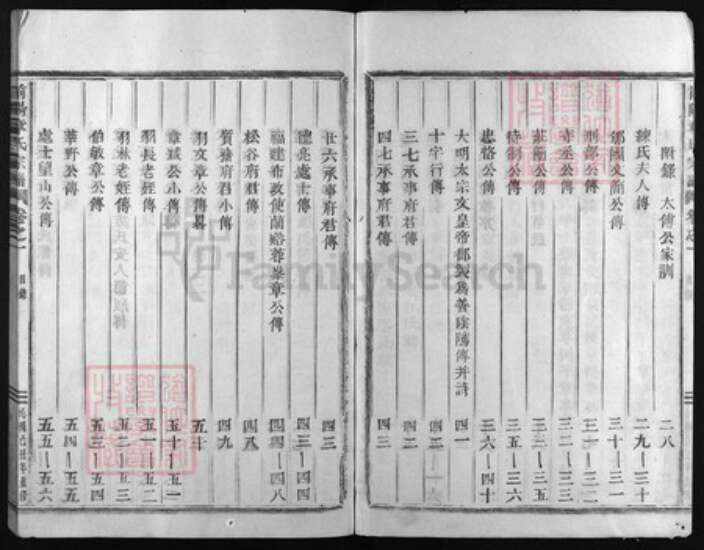 附錄 太傅公家訓 二八
練氏夫人傳 二九—三十
郇國文簡公傳 三十—三一
刑部公傳 三一—三二
寺丞公傳 三二—三三
莊簡公傳 三三—三五
待制公傳 三五—三六
忠恪公傳 三六—四十
大明太宗文皇帝御製為善陰隲傳并詩 四一
十字行傳 四二
三七承事府君傳 四二
四七承事府君傳 四三
廿六承事府君傳 四三
德亮處士傳 四三—四四
福建布政使蘭谿葑菴章公傳 四四—四八
松谷府君傳 四八
質菴府君小傳 四九
羽文章公傳畧 五十
章誠公小傳 五十—五一
羽長老姪傳 五一—五二
羽林老姪傳 五二—五三
伯敏章公傳 五三—五四
華野公傳 五四—五五
處士望山公傳 五五—五六
FamilySearch